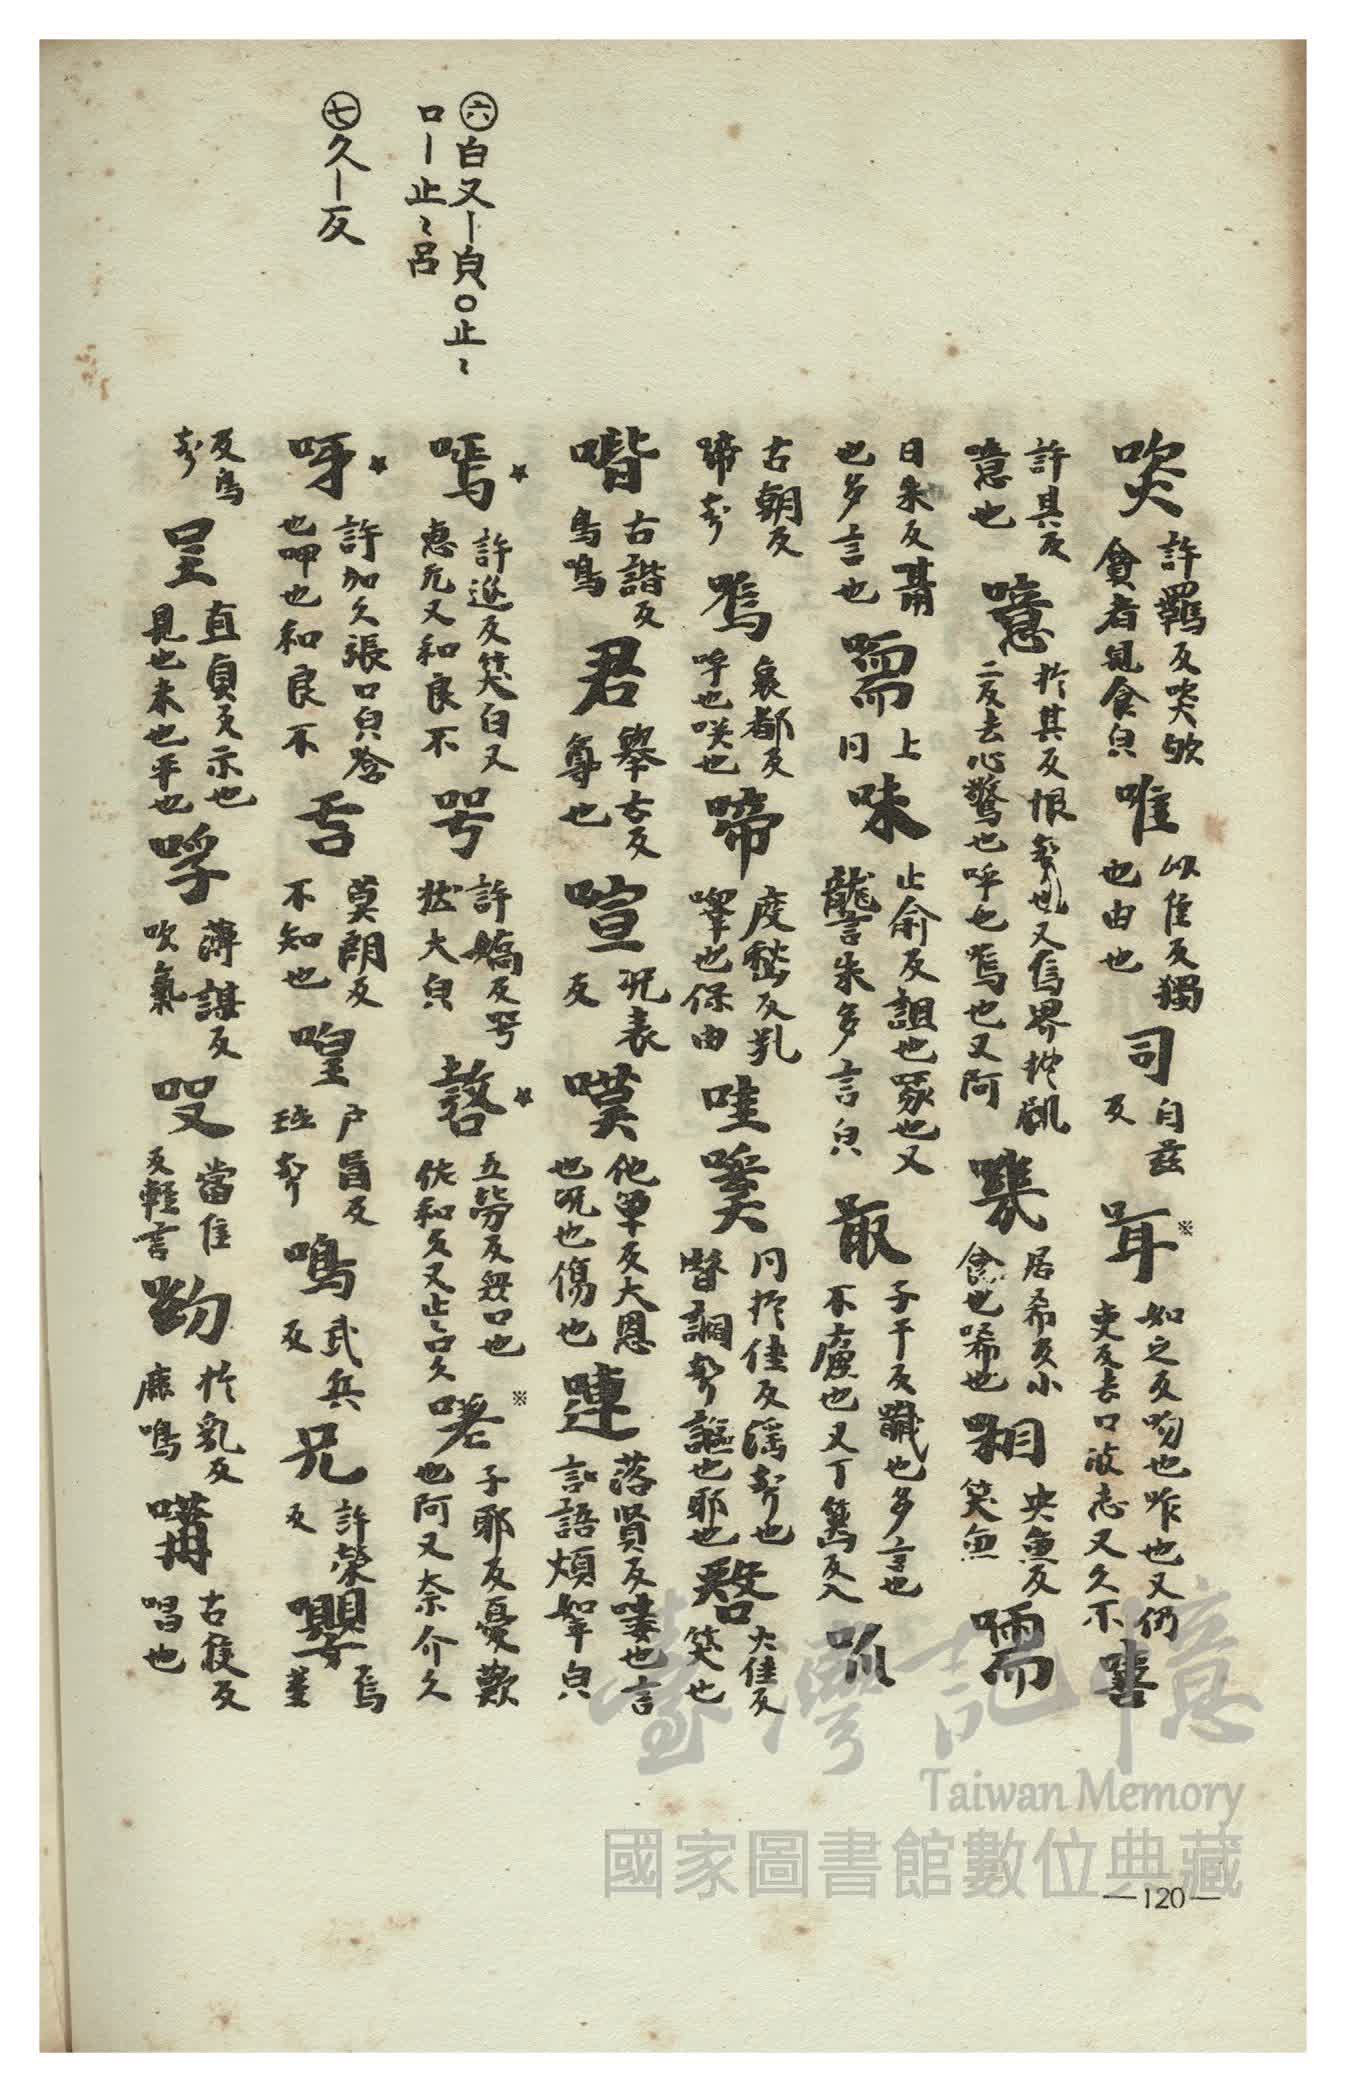 ㊅白又〡㒵〇止〻
口〡止〻呂
㊆久〡反
吹 許羈反唉欨 貪者見食皃 唯 以隹反獨 也由也 司 自茲 反 咡 ※ 如之反吻也咋也又仍 吏反去口液志又久不 嘻
許其反 噫也 噫 於其反恨聲也又烏界於飢 二反去心驚也呼也嗚也又阿 嘰 居希反小 食也唏也 喣 央魚反 笑皃 嚅
日朱反 也多言也 嚅 上 同 咮 止俞反詛也啄也又 言朱多言皃 㖩 子于反也多言也 不廉也又丁反入 呱
古胡反 啼聲 嗚 哀都反 呼也咲也 啼 度嵆反乳 嘷也保由 哇 㗨 同於佳反淫聲也 謳也耶也 火佳反 笑也
喈 古諧反 鳥鳴 君 舉云反 尊也 喧 況袁 反 嘆 他單反大恩 也咒也傷也 嗹 落賢反嘍也言 言語煩挐皃
嘕 ★ 許延反笑白又 惠允又和良不 呺 許嬌反号 猶大皃 謷 ★ 五勞反無口也 佐和久又止〻口久 嗟 ※ 子耶反憂歎 也阿又奈介久
呀 ★ 許加久張口皃唅 也呷也和良不 吂 莫朗反 不知也 喤 戶盲反 聲 鳴 武兵 反 兄 許榮 反 嚶 烏莖
反鳥 聲 呈 直貞反示也 見也未也平也 哹 薄謀反 吹氣 㕛 當隹 反輕言 呦 於虬反 鹿鳴 㗕 古侯反 唱也
—120—
臺灣記憶
Taiwan Memory
國家圖書館數位典藏